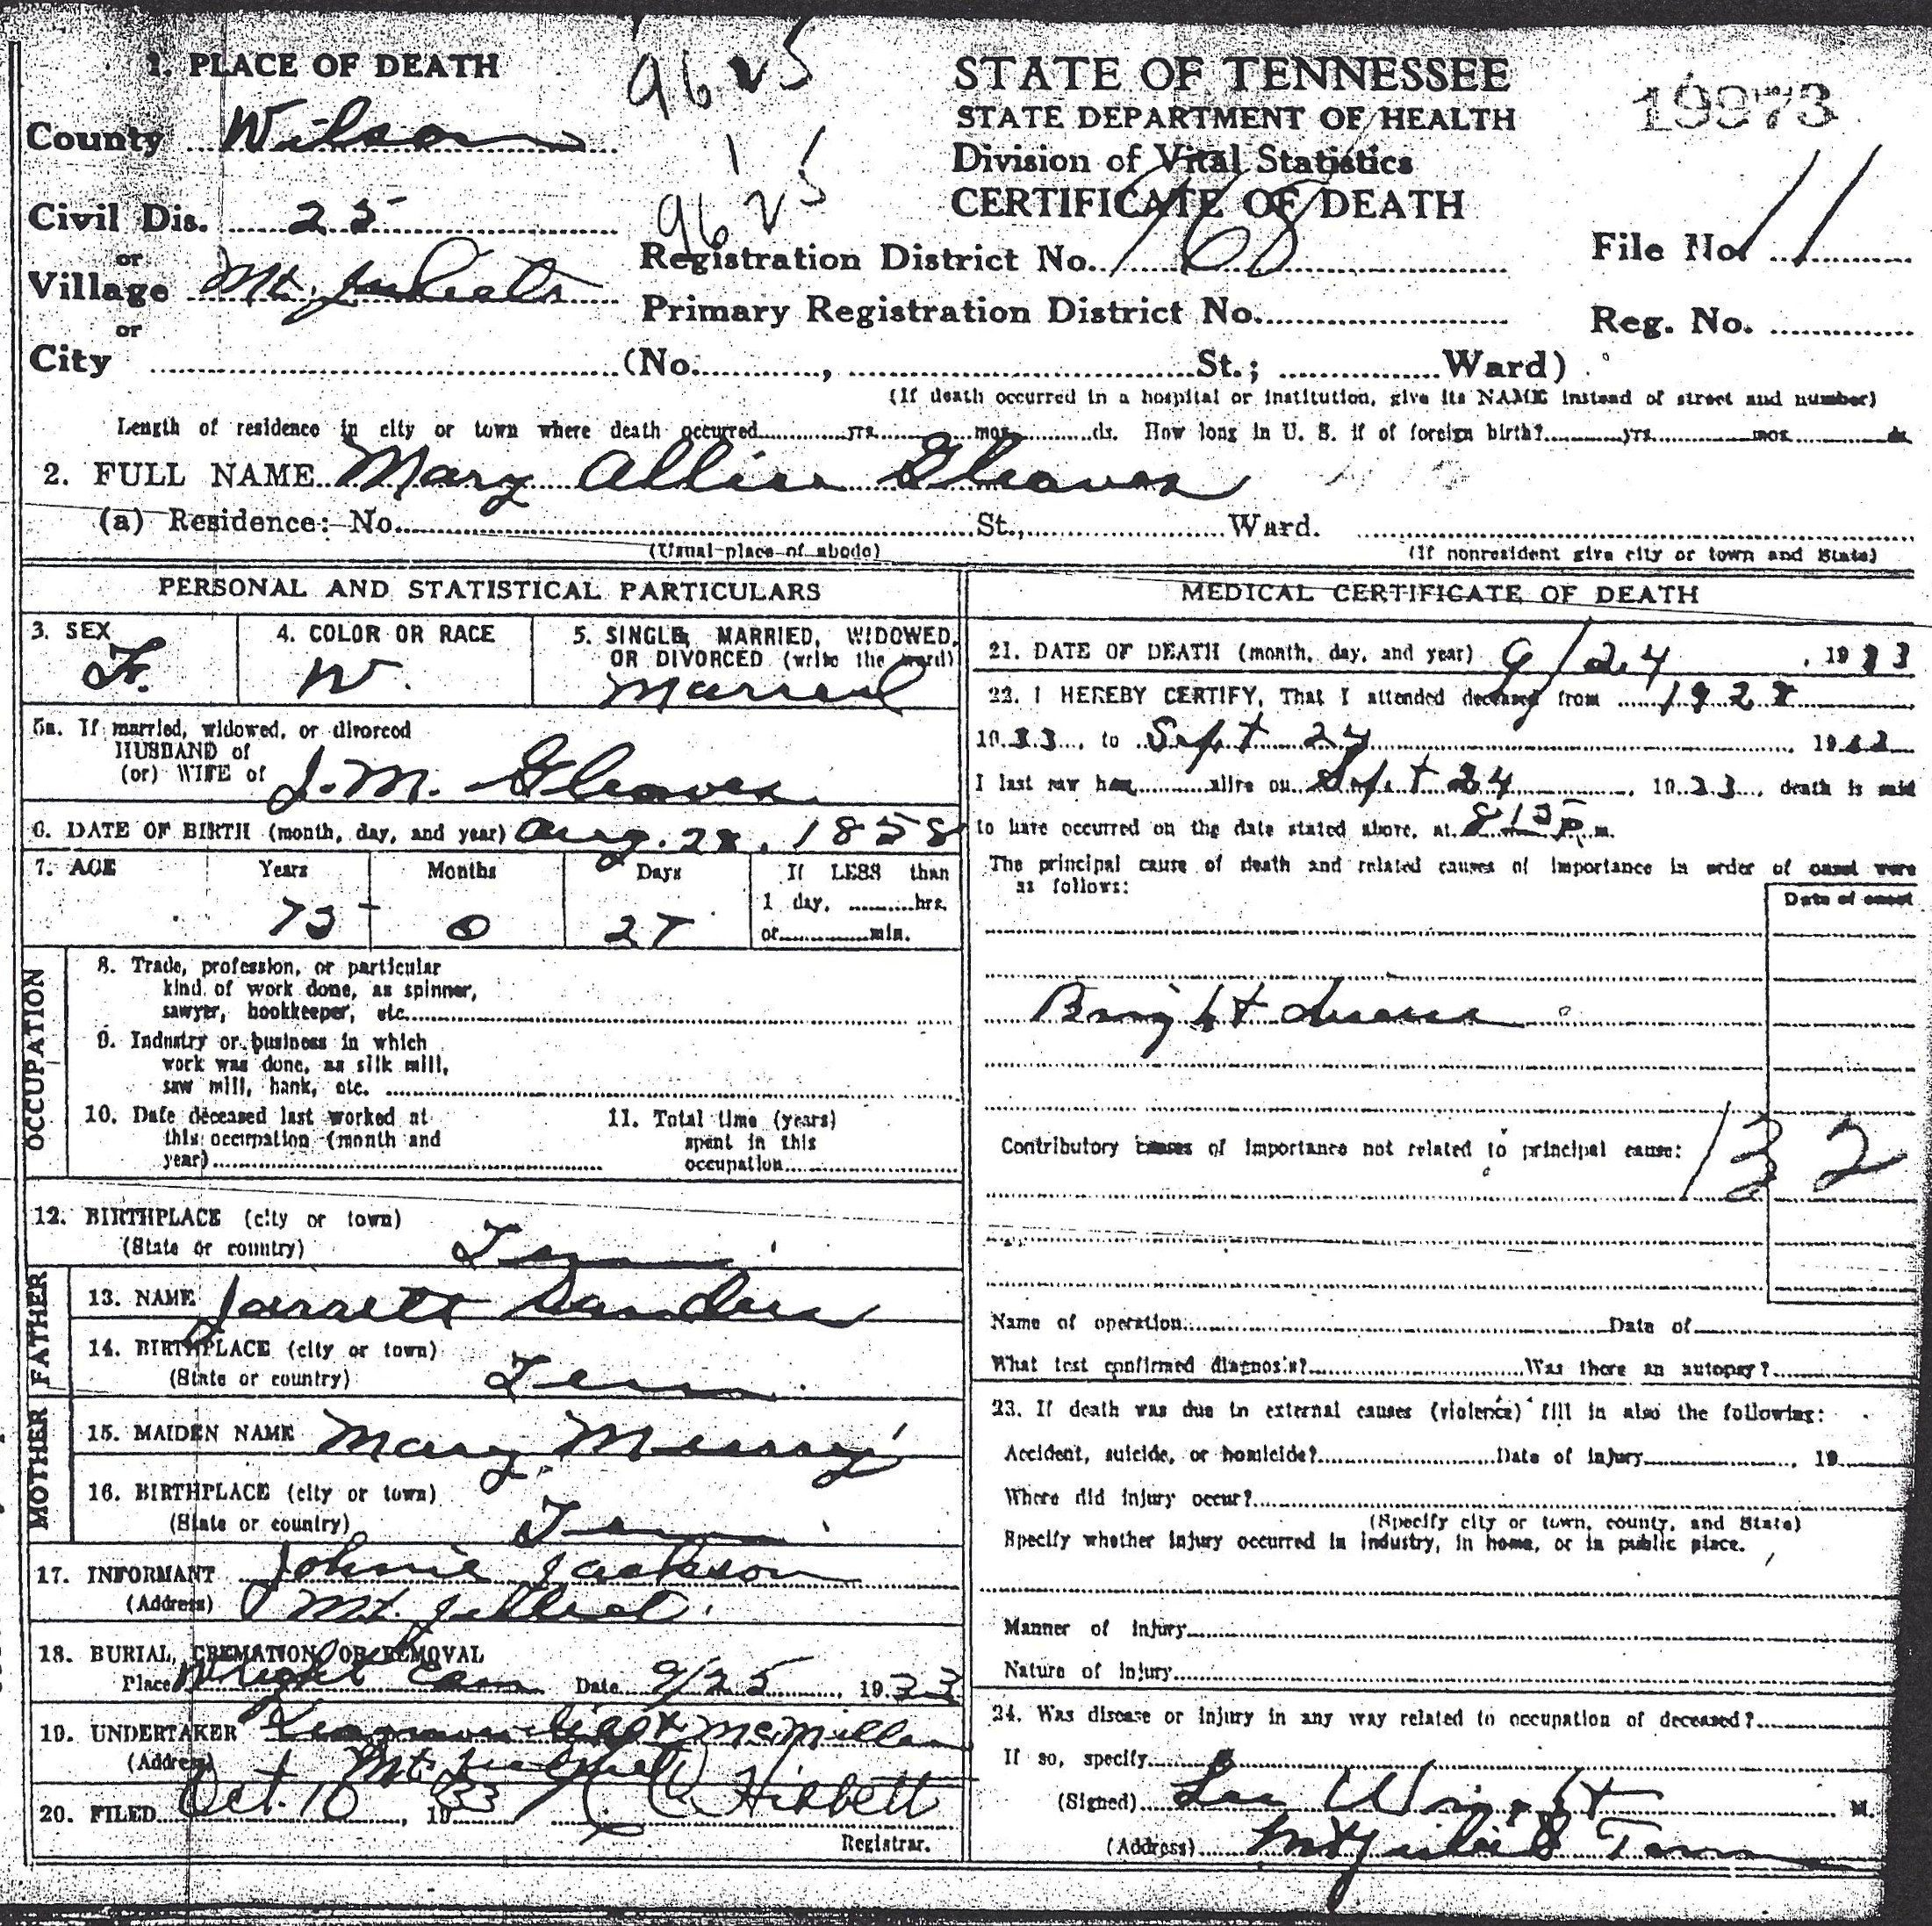 1. PLACE OF DEATH
County Wilson
Civil Dis. 25
or
Village Mt. Juliet
or
City (No. , St.; Ward)
9625
9625
STATE OF TENNESSEE
STATE DEPARTMENT OF HEALTH
Division of Vital Statistics
CERTIFICATE OF DEATH
Registration District No. 168
Primary Registration District No.
19973
File No. 11
Reg. No.
(If death occurred in a hospital or institution, give its NAME instead of street and number)
Length of residence in city or town where death occurred yrs. mos. ds. How long in U. S. if of foreign birth? yrs. mos. ds.
2. FULL NAME Mary Allice Gleaves
(a) Residence: No. St., Ward.
(Usual place of abode) (If nonresident give city or town and State)
PERSONAL AND STATISTICAL PARTICULARS
3. SEX F.
4. COLOR OR RACE W.
5. SINGLE, MARRIED, WIDOWED, OR DIVORCED (write the word)
Married
5a. If married, widowed, or divorced
HUSBAND of
(or) WIFE of J. M. Gleaves
6. DATE OF BIRTH (month, day, and year) Aug. 28, 1858
7. AGE Years Months Days If LESS than
1 day, hrs.
or min.
75 0 27
OCCUPATION
8. Trade, profession, or particular
kind of work done, as spinner,
sawyer, bookkeeper, etc.
9. Industry or business in which
work was done, as silk mill,
saw mill, bank, etc.
10. Date deceased last worked at
this occupation (month and
year)
11. Total time (years)
spent in this
occupation
12. BIRTHPLACE (city or town)
(State or country) Tenn
FATHER
13. NAME Jarrett Sanders
14. BIRTHPLACE (city or town)
(State or country) Tenn.
MOTHER
15. MAIDEN NAME Mary Murry
16. BIRTHPLACE (city or town)
(State or country) Tenn
17. INFORMANT Johnie Jackson
(Address) Mt. Juliet
18. BURIAL, CREMATION OR REMOVAL
Place Wright Cem Date 9/25, 1933
19. UNDERTAKER & McMillan
(Address) Mt. Juliet
20. FILED Oct. 10, 1933 Hibbett
Registrar.
MEDICAL CERTIFICATE OF DEATH
21. DATE OF DEATH (month, day, and year) 9/24, 1933
22. I HEREBY CERTIFY, That I attended deceased from 1928
1933, to Sept 24, 1933
I last saw her alive on Sept 24, 1933, death is said
to have occurred on the date stated above, at 8 15 P. m.
The principal cause of death and related causes of importance in order of onset were
as follows:
Date of onset
Bright disease
Contributory causes of importance not related to principal cause:
132
Name of operation Date of
What test confirmed diagnosis? Was there an autopsy?
23. If death was due to external causes (violence) fill in also the following:
Accident, suicide, or homicide? Date of injury , 19
Where did injury occur?
(Specify city or town, county, and State)
Specify whether injury occurred in industry, in home, or in public place.
Manner of injury
Nature of injury
24. Was disease or injury in any way related to occupation of deceased?
If so, specify
(Signed) Lee Wright M.
(Address) Mt Juliet Tenn